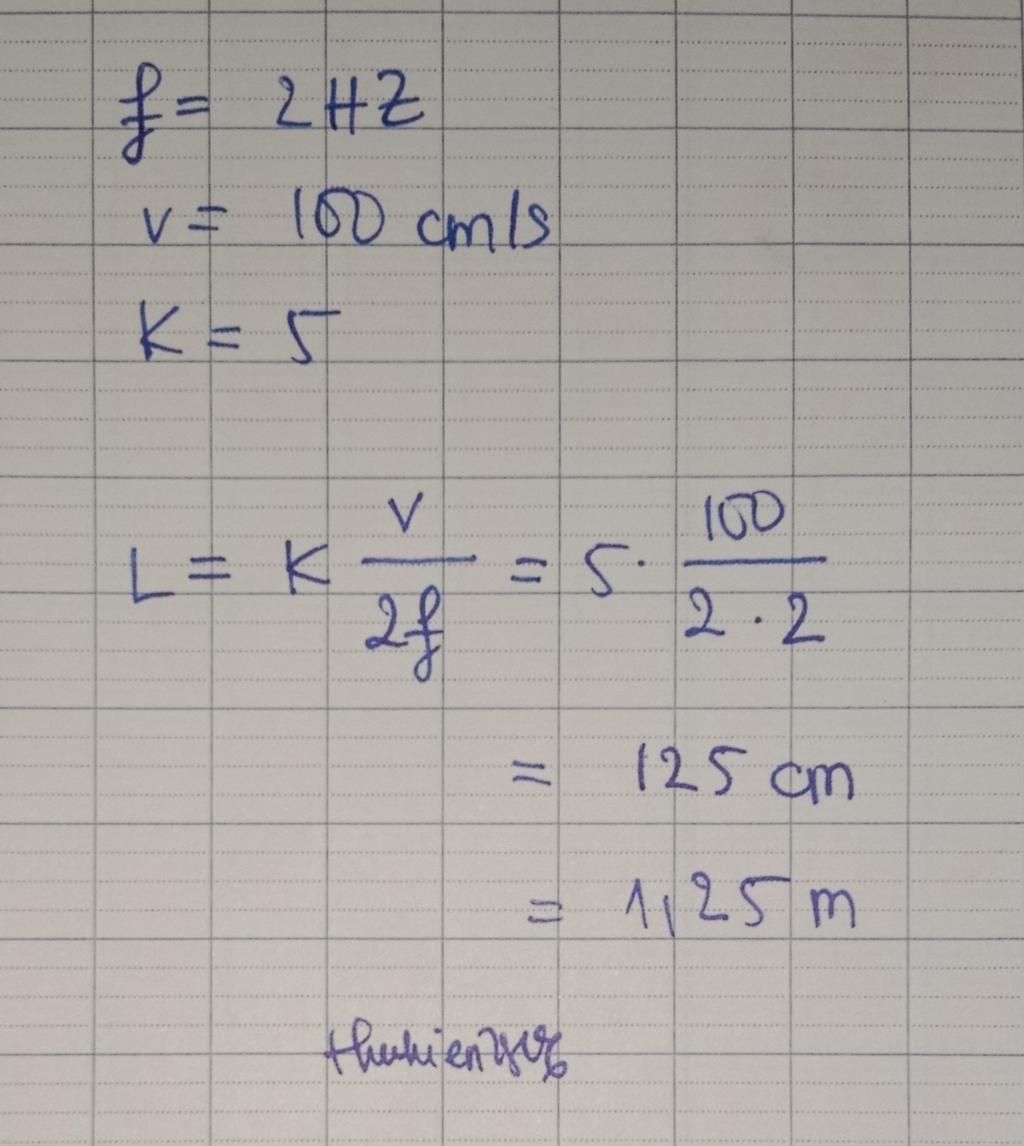 f = 2 HZ
v = 100 cm/s
K = 5
L = K v/2f = 5 . 100/2 . 2
= 125 cm
= 1,25 m